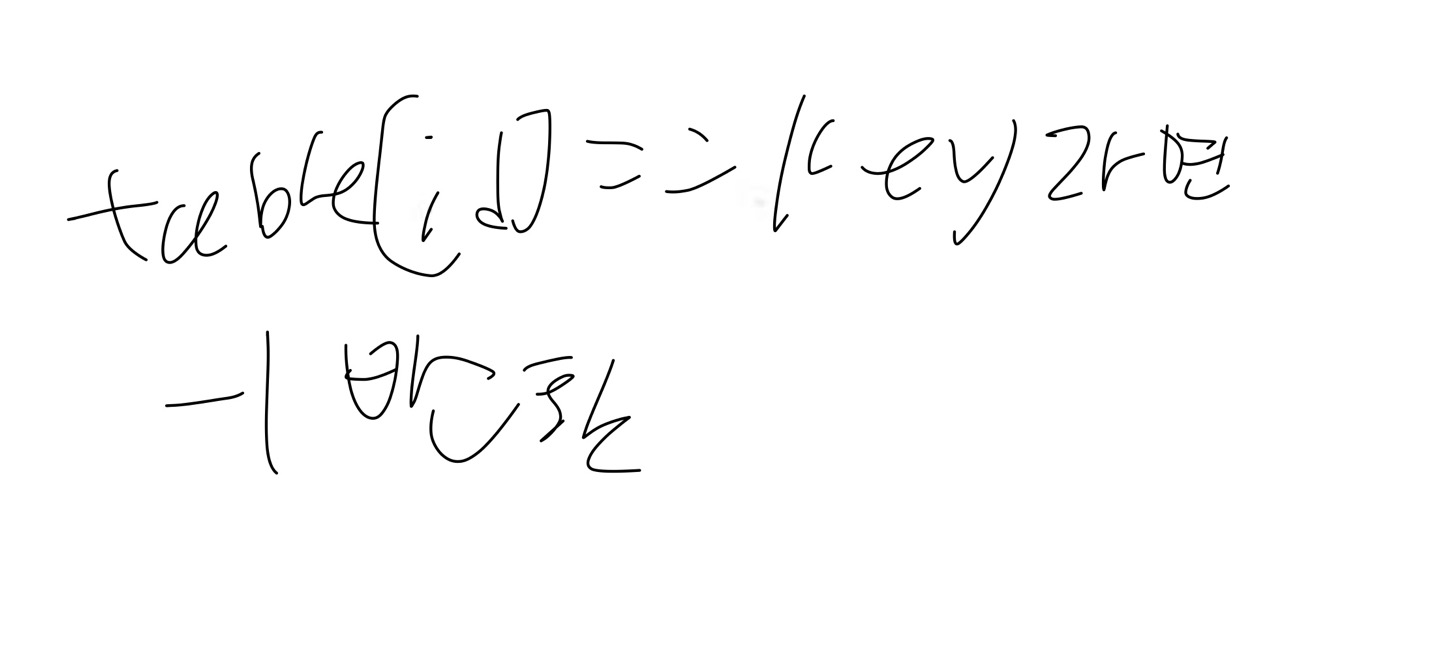 table[id] == key라면
-1 반환